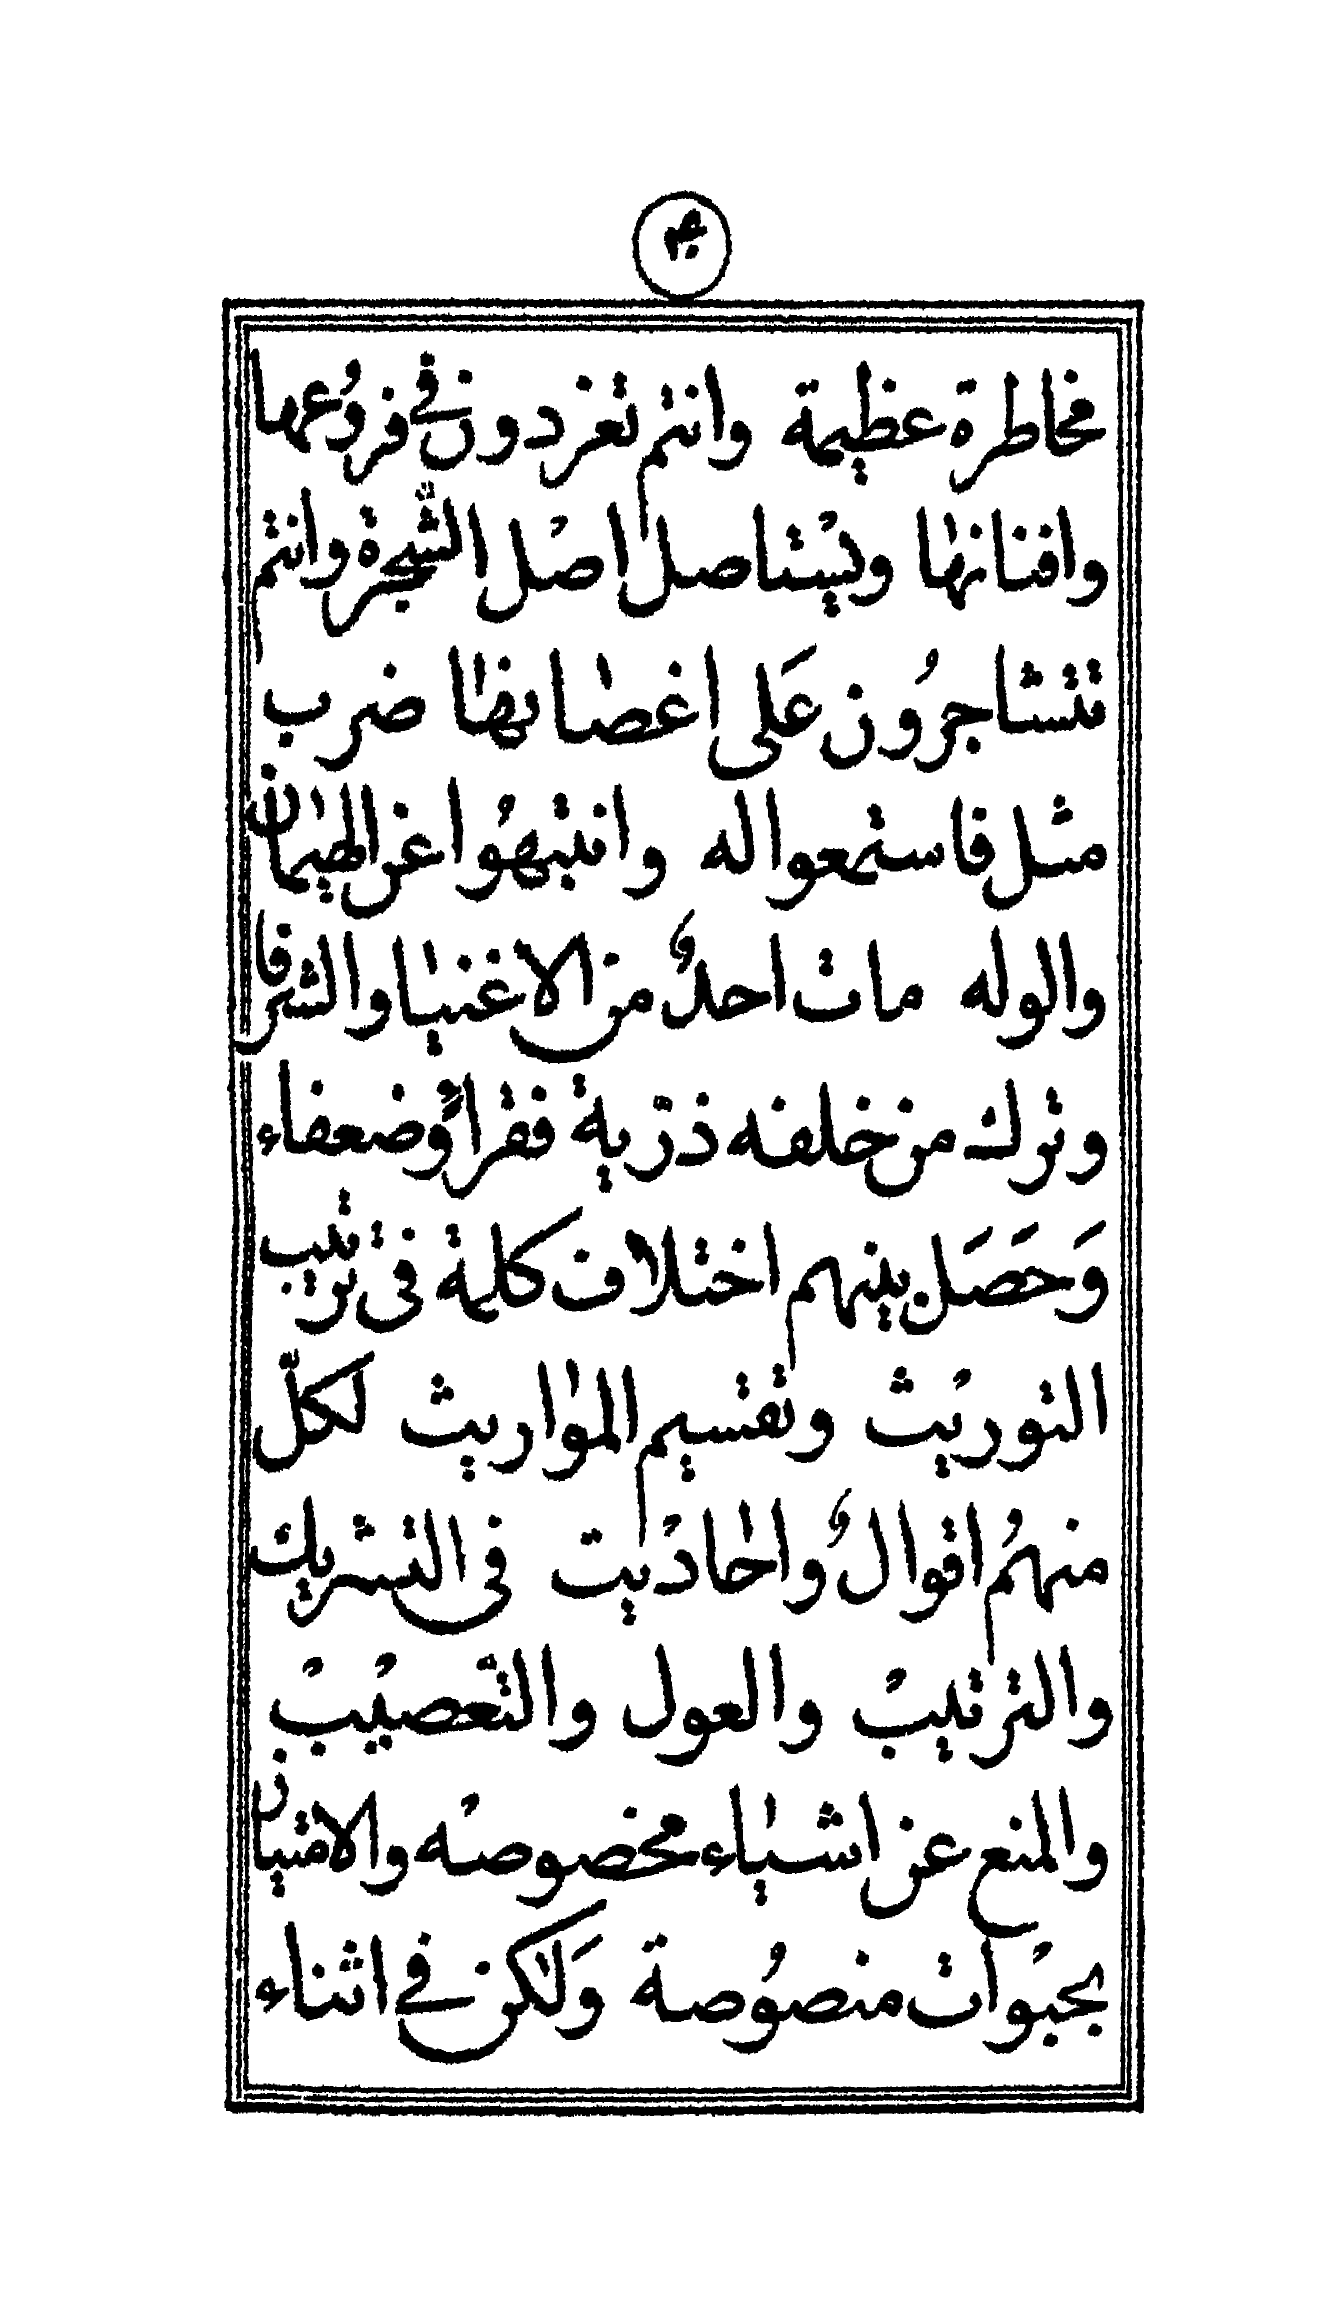 مخاطرة عظيمة وانتم تغردون في فروعها
وافنانها ويستاصل اصل الشجرة وانتم
تتشاجرون على اغصانها ضرب
مثل فاستمعوا له وانتبهوا عن الهيمان
والوله مات احد من الاغنيا والشرفا
وترك من خلفه ذرية فقراً وضعفاء
وَحَصَل بينهم اختلاف كلمة في ترتيب
التوريث وتقسيم المواريث لكلّ
منهم اقوالٌ واحاديث في التشريك
والترتيب والعول والتعصيب
والمنع عن اشياء مخصوصه والامتياز
بحبوات منصوصة وَلكن في اثناء